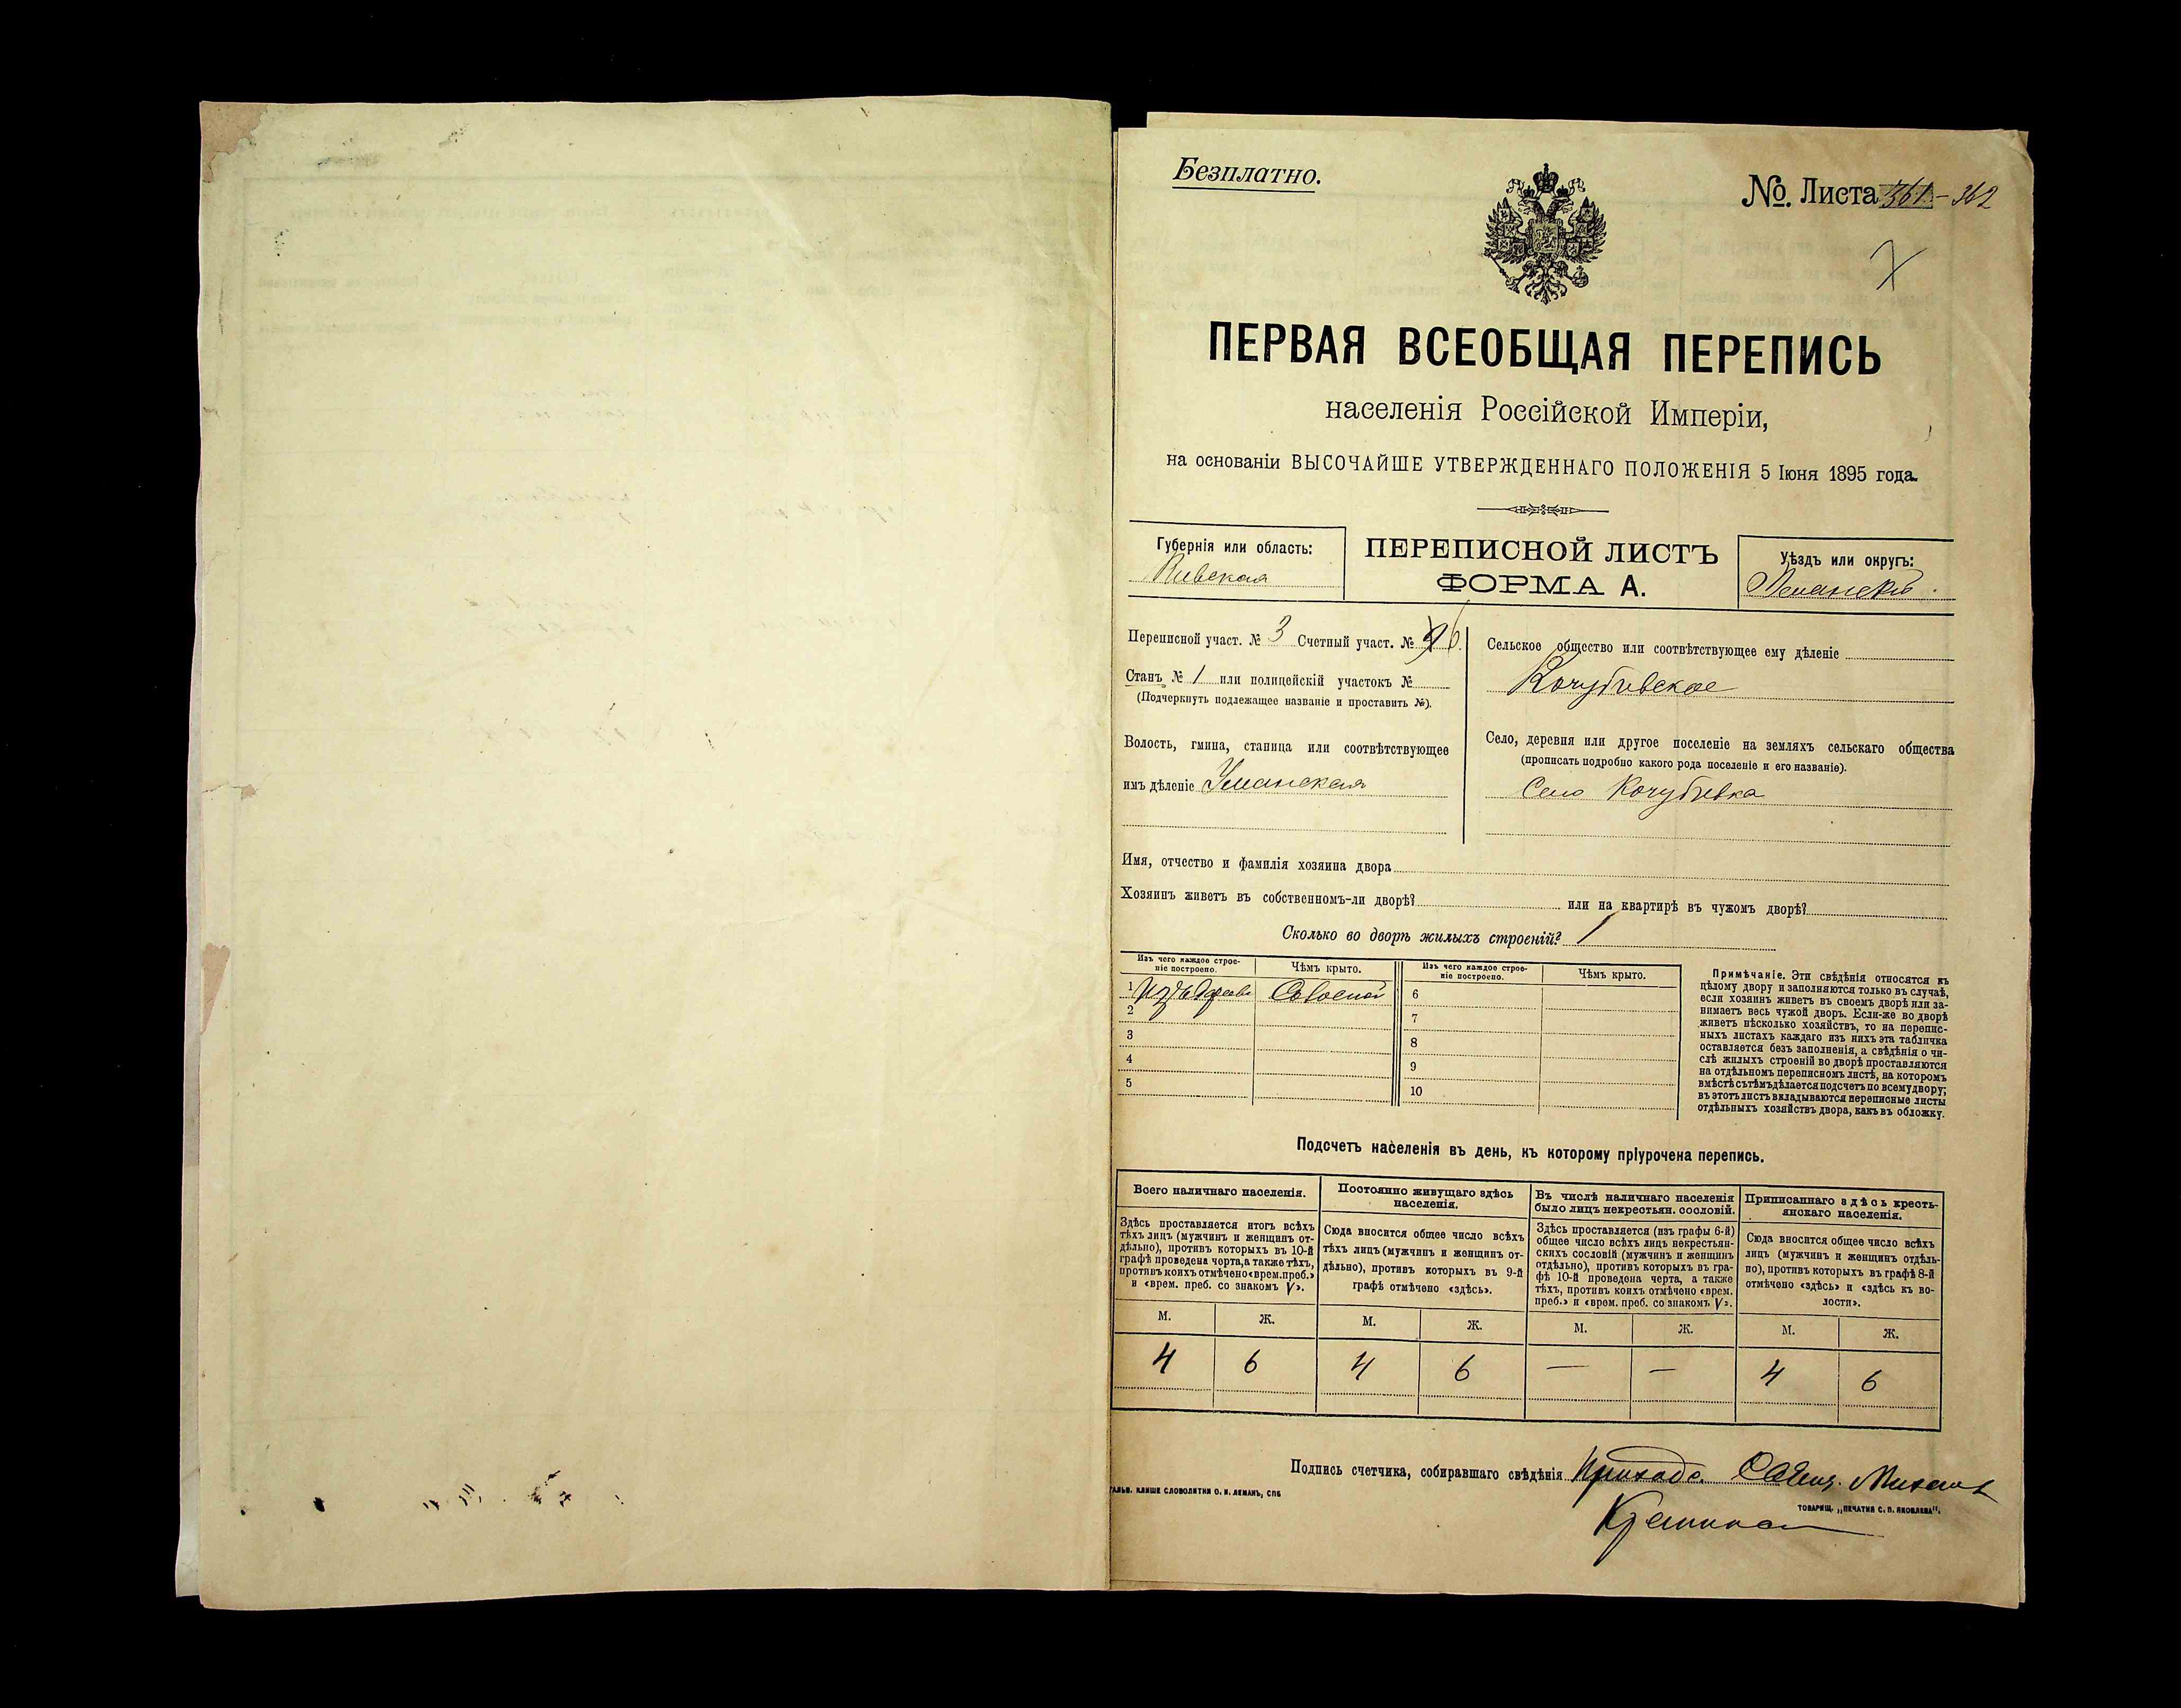 Безплатно.
№. Листа 361-362
ПЕРВАЯ ВСЕОБЩАЯ ПЕРЕПИСЬ
населенія Россійской Имперіи,
на основаніи ВЫСОЧАЙШЕ УТВЕРЖДЕННАГО ПОЛОЖЕНІЯ 5 Іюня 1895 года.
Губернія или область:
Кіевская
ПЕРЕПИСНОЙ ЛИСТЪ
ФОРМА А.
Уѣздъ или округъ:
Уманскій
Переписной участ. № 3 Счетный участ. № 6.
Станъ № 1 или полицейскій участокъ №
(Подчеркнуть подлежащее названіе и проставить №).
Волость, гмина, станица или соотвѣтствующее
имъ дѣленіе Уманская
Сельское общество или соотвѣтствующее ему дѣленіе
Кочубіевское
Село, деревня или другое поселеніе на земляхъ сельскаго общества
(прописать подробно какого рода поселеніе и его названіе).
Село Кочубіевка
Имя, отчество и фамилія хозяина двора
Хозяинъ живетъ въ собственномъ-ли дворѣ? или на квартирѣ въ чужомъ дворѣ?
Сколько во дворѣ жилыхъ строеній? 1
Изъ чего каждое строе-
ніе построено.
Чѣмъ крыто.
Изъ чего каждое строе-
ніе построено.
Чѣмъ крыто.
1 Изъ дерева Соломой 6
2 7
3 8
4 9
5 10
Примѣчаніе. Эти свѣдѣнія относятся къ
цѣлому двору и заполняются только въ случаѣ,
если хозяинъ живетъ въ своемъ дворѣ или за-
нимаетъ весь чужой дворъ. Если-же во дворѣ
живетъ нѣсколько хозяйствъ, то на перепис-
ныхъ листахъ каждаго изъ нихъ эта табличка
оставляется безъ заполненія, а свѣдѣнія о чи-
слѣ жилыхъ строеній во дворѣ проставляются
на отдѣльномъ переписномъ листѣ, на которомъ
вмѣстѣ съ тѣмъ дѣлается подсчетъ по всему двору;
въ этотъ листъ вкладываются переписные листы
отдѣльныхъ хозяйствъ двора, какъ въ обложку.
Подсчетъ населенія въ день, къ которому пріурочена перепись.
Всего наличнаго населенія.
Здѣсь проставляется итогъ всѣхъ
тѣхъ лицъ (мужчинъ и женщинъ от-
дѣльно), противъ которыхъ въ 10-й
графѣ проведена черта, а также тѣхъ,
противъ коихъ отмѣчено «врем. преб.»
и «врем. преб. со знакомъ V».
Постоянно живущаго здѣсь
населенія.
Сюда вносится общее число всѣхъ
тѣхъ лицъ (мужчинъ и женщинъ от-
дѣльно), противъ которыхъ въ 9-й
графѣ отмѣчено «здѣсь».
Въ числѣ наличнаго населенія
было лицъ некрестьян. сословій.
Здѣсь проставляется (изъ графы 6-й)
общее число всѣхъ лицъ некрестьян-
скихъ сословій (мужчинъ и женщинъ
отдѣльно), противъ которыхъ въ гра-
фѣ 10-й проведена черта, а также
тѣхъ, противъ коихъ отмѣчено «врем.
преб.» и «врем. преб. со знакомъ V».
Приписаннаго здѣсь кресть-
янскаго населенія.
Сюда вносится общее число всѣхъ
лицъ (мужчинъ и женщинъ отдѣль-
но), противъ которыхъ въ графѣ 8-й
отмѣчено «здѣсь» и «здѣсь къ во-
лости».
М. Ж. М. Ж. М. Ж. М. Ж.
4 6 4 6 — — 4 6
Подпись счетчика, собиравшаго свѣдѣнія
КЛИШЕ СЛОВОЛИТНИ О. И. ЛЕМАНЪ, СПБ
ТОВАРИЩ. „ПЕЧАТНЯ С. П. ЯКОВЛЕВА".